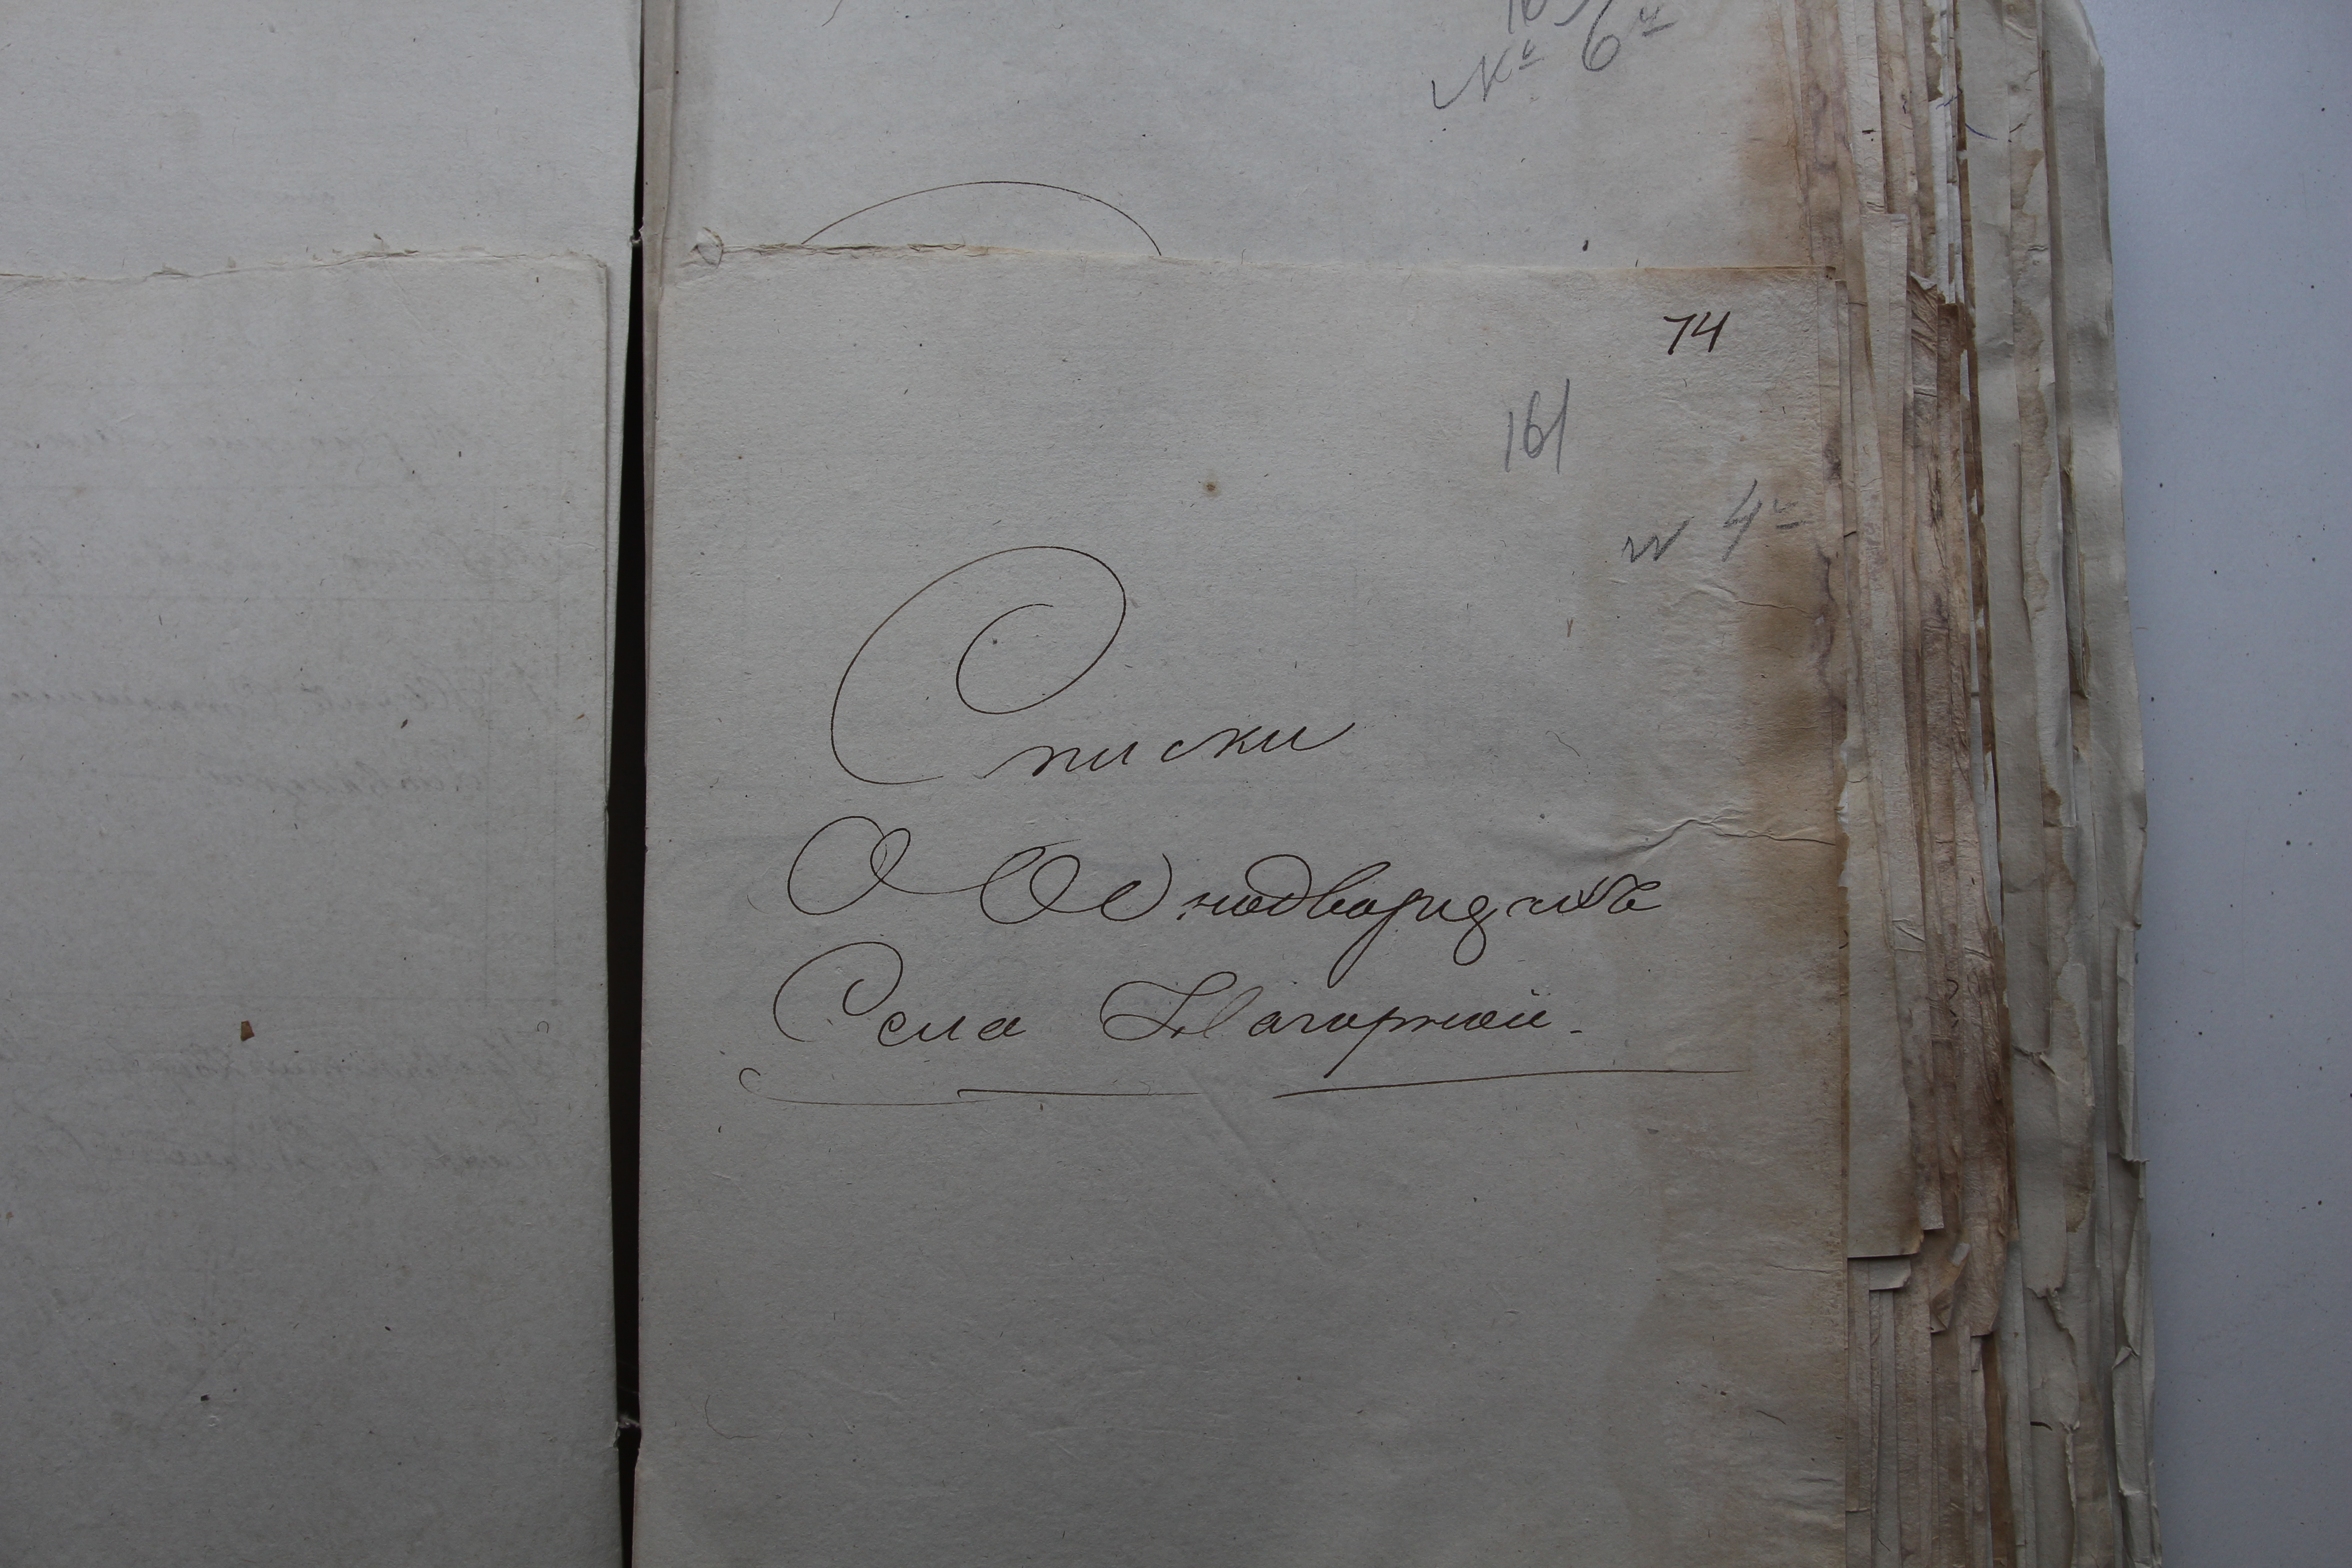 № 6й
74
161
№ 4й
Списки
О Однодворцахъ
Села Нагорной.